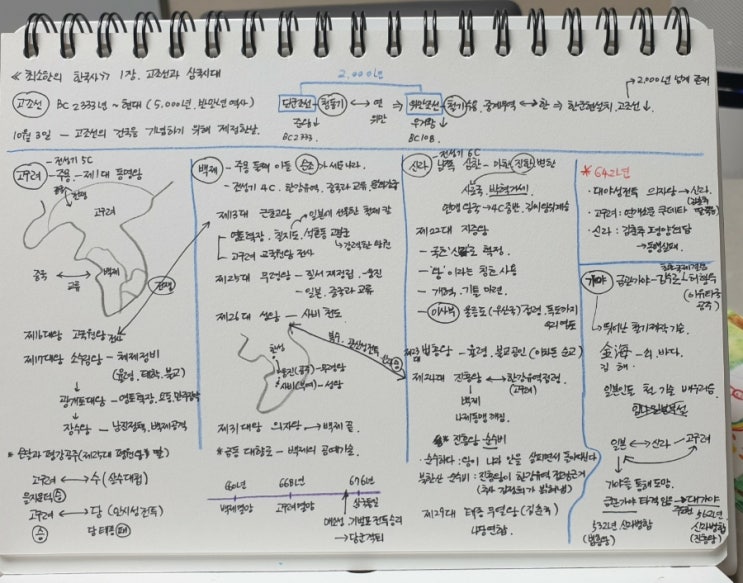 ≪최소한의 한국사≫ 1장. 고조선과 삼국시대
2.000년
2.000년 넘게 존재
고조선 BC 2333년 ~ 현대 (5.000년, 반만년 역사)
단군조선 청동기 ↔ 연 ⇒ 위만조선 철기수용, 중계무역 ↔ 한 ⇒ 한군현설치, 고조선↓
위만
BC 2333.
우거왕↓
BC 108.
10월 3일 - 고조선의 건국을 기념하기 위해 제정한 날.
고구려 - 전성기 5C
- 주몽 - 제1대 동명왕
고구려
백제
중국 ↔
교류
전쟁
제16대왕 고국원왕 전사
제17대왕 소수림왕 - 체제정비
(율령, 태학, 불교)
↓
광개토대왕 - 영토확장,
↓
장수왕 - 남진정책, 백제공격
* 온달과 평강공주 (제25대 평원왕 딸)
고구려 ↔ 수 (살수대첩)
을지문덕 승
고구려 ↔ 당 (안시성전투)
승
당 태종 패
백제 - 주몽 둘째 아들 온조가 세운 나라.
- 전성기 4C. 한강유역, 중국과 교류
제13대 근초고왕
일본에 선물한 철제 칼
영토확장, 칠지도,
고구려 고국원왕 전사
제25대 무령왕 - 질서 재정립, 웅진
- 일본, 중국과 교류
제26대 성왕 - 사비 천도
한성
웅진(공주) - 무령왕
사비(부여) - 성왕
제31대왕 의자왕 → 백제 끝.
* 금동대향로 - 백제의 공예기술.
660년
백제멸망
668년
고구려멸망
676년
삼국통일
매소성, 기벌포 전투승리
→ 당군격퇴
신라 - 전성기 6C
남쪽 삼한 - 마한 진한 변한
사로국, 박혁거세
제22대 지증왕
- 국호 '신라'로 확정
- '왕'이라는 칭호 사용
- 이사부 울릉도 (우산국) 점령, 독도까지
우리 영토
제23대 법흥왕 - 율령, 불교공인 (이차돈 순교)
제24대 진흥왕 ↔ 한강유역점령
(고구려)
백제
나제동맹 깨짐.
* 진흥왕 순수비
- 순수하다 : 왕이 나라 안을 살피면서 돌아다닌다
북한산 순수비 : 진흥왕이 한강유역 점령근거
(추사 김정희가 밝혀냄)
제29대 태종 무열왕 (김춘추)
나당연합.
* 642년
· 대야성전투 의자왕 → 신라.
· 고구려 : 연개소문 쿠데타
· 신라 : 김춘추 평양회담
→ 동맹실패.
가야 금관가야 - 김수로 - 허황옥
(아유타국
공주)
→ 뛰어난 철기제작 기술.
金海 - 쇠. 바다.
김 해
일본인들 철 기술 배우려옴
일본 ↔ 신라 고구려
가야를 통해 도망.
금관가야 타격 입음 → 대가야
532년 신라병합
(법흥왕)
562년
신라병합
(진흥왕)